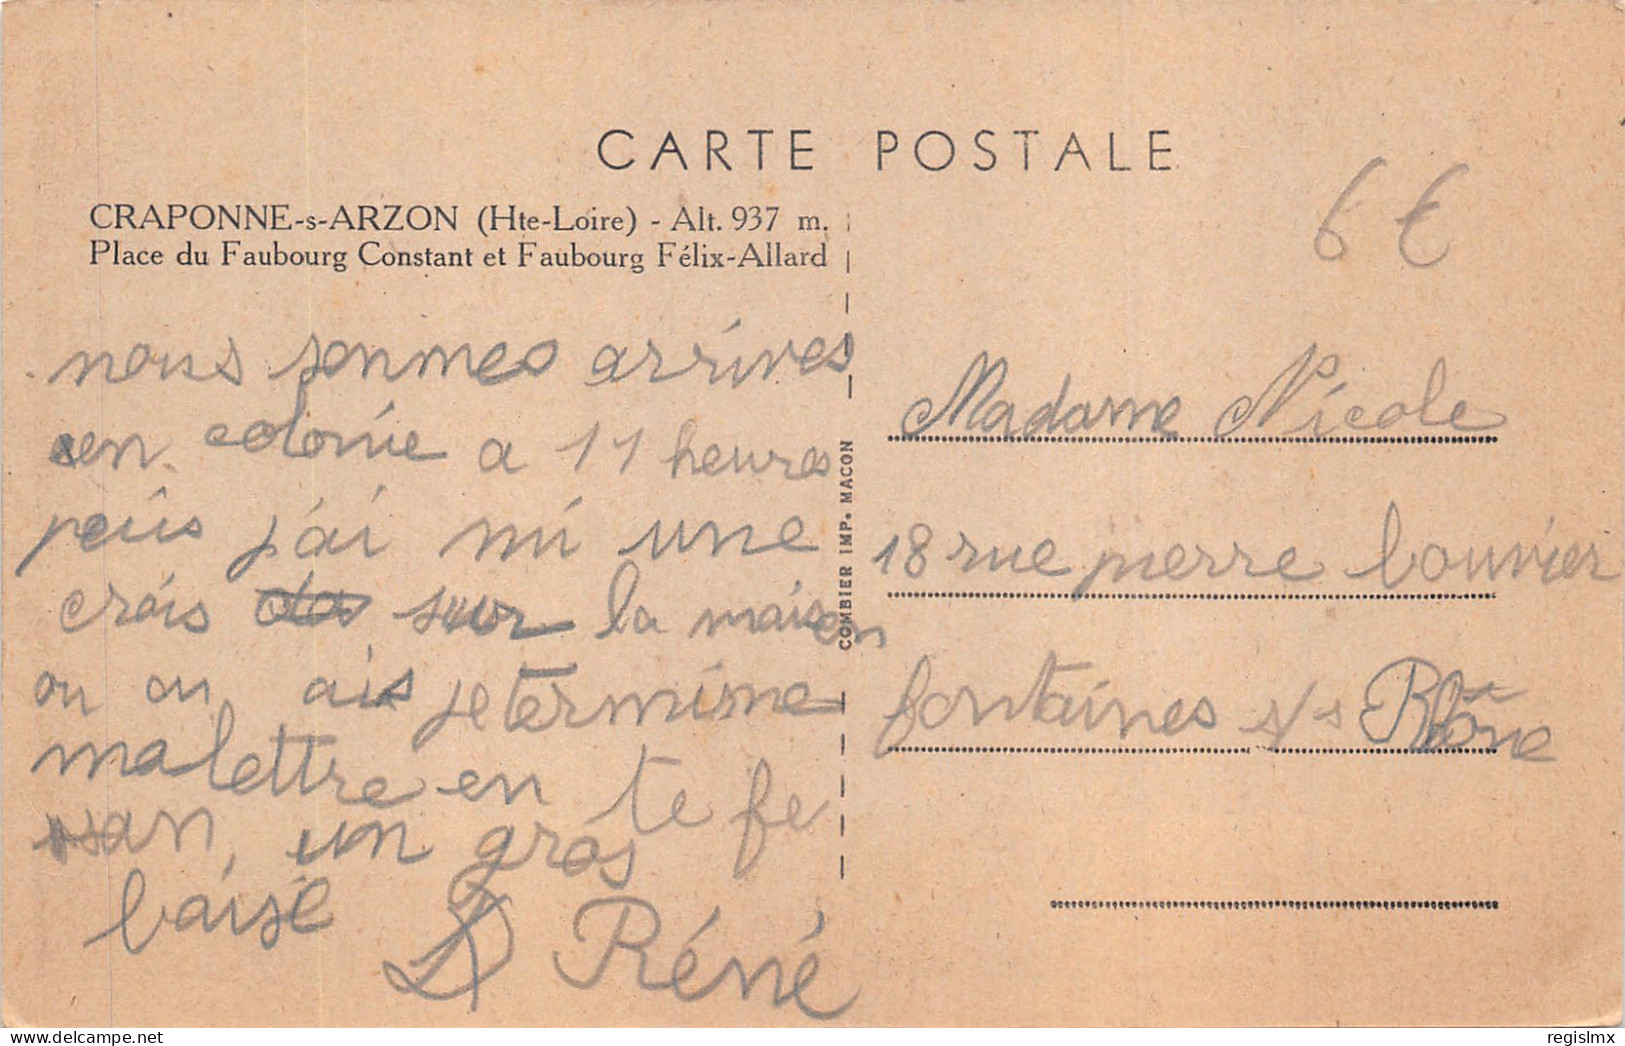 CARTE POSTALE
CRAPONNE-s-ARZON (Hte-Loire) - Alt. 937 m.
Place du Faubourg Constant et Faubourg Félix-Allard
6€
nous sommes arrives
en colonie a 11 heures
puis j'ai mi une
crois sur la maison
ou on ais je termime
ma lettre en te fe
san un gros
baise
Réné
COMBIER IMP. MACON
Madame Nicole
18 rue pierre bouvier
fontaines s/s Rhône
regislmx